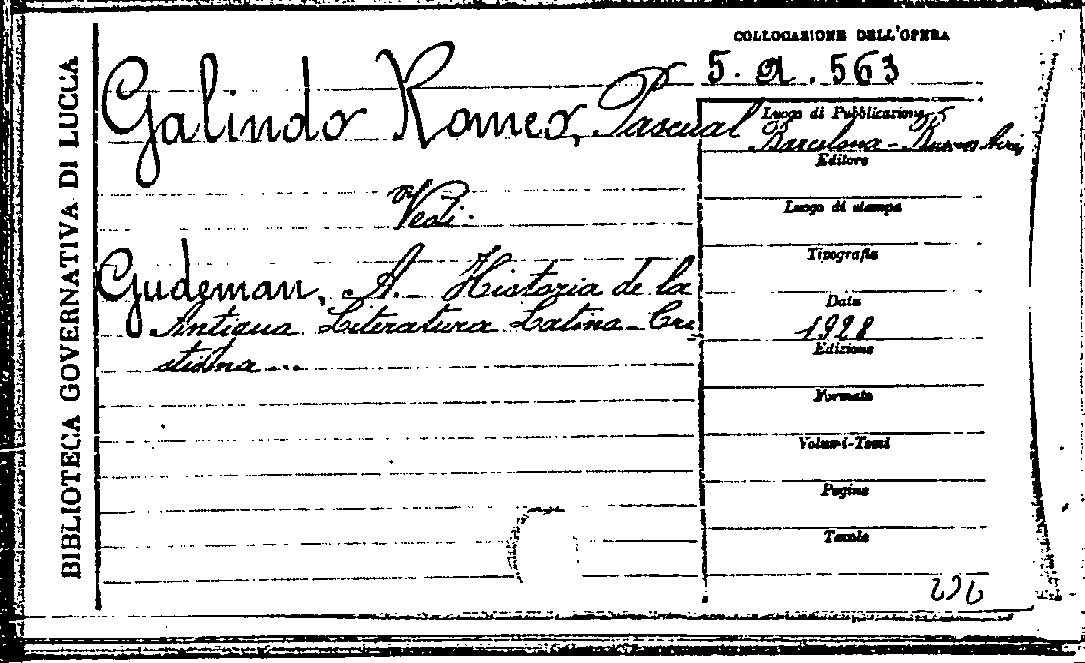 BIBLIOTECA GOVERNATIVA DI LUCCA
COLLOCAZIONE DELL'OPERA
5. a. 563
Galindo Romeo, Pascual
Vedi.
Gudeman, A. Historia de la
Antigua Literatura Latina-Cri
stiana ...
Luogo di Pubblicazione
Barcelona - Buenos Aires
Editore
Luogo di stampa
Tipografia
Data
1928
Edizione
Formato
Volumi-Tomi
Pagine
Tavole